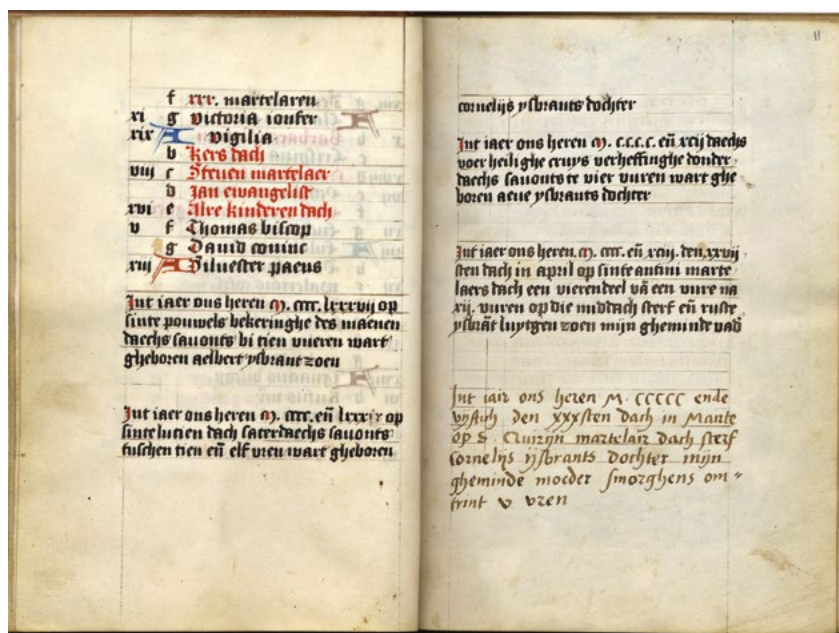 f xxx. martelaren
xi g Victoria ioufer
xix A Vigilia
b kers dach
viii c Steuen martelaer
d Jan ewangelist
xvi e Alre kinderen dach
v f Thomas biscop
g Dauid coninc
xiii A Siluester paeus
Int iaer ons heren M. cccc. lxxxvij op
sinte pouwels bekeringhe des maenen
daechs sauonts bi tien vueren wart
gheboren aelbert ysbrant zoen
Int iaer ons heren M. cccc. eñ lxxxix op
sinte lucien dach saterdaechs sauonts
tusschen tien eñ elf vren wart gheboren
11
cornelijs ysbrants dochter
Int iaer ons heren M. c.c.c.c. eñ xcij daechs
voer heilighe cruys verheffinghe donder
daechs sauonts te vier vuren wart ghe
boren aeue ysbrants dochter
Int iaer ons heren. M. cccc. eñ xciii. den xxvij
sten dach in april op sinte antimi marte
laers dach een vierendeel vā een vure na
xij. vuren op die middach sterf eñ ruste
ysbrāt luytgen zoen mijn gheminde vad
Int iair ons heren M. CCCCC ende
vijftich den xxxsten dach in Marte
op S. Quirijn martelair dach sterf
Cornelijs ijsbrants dochter mijn
gheminde moeder smorghens om=
trint v vren